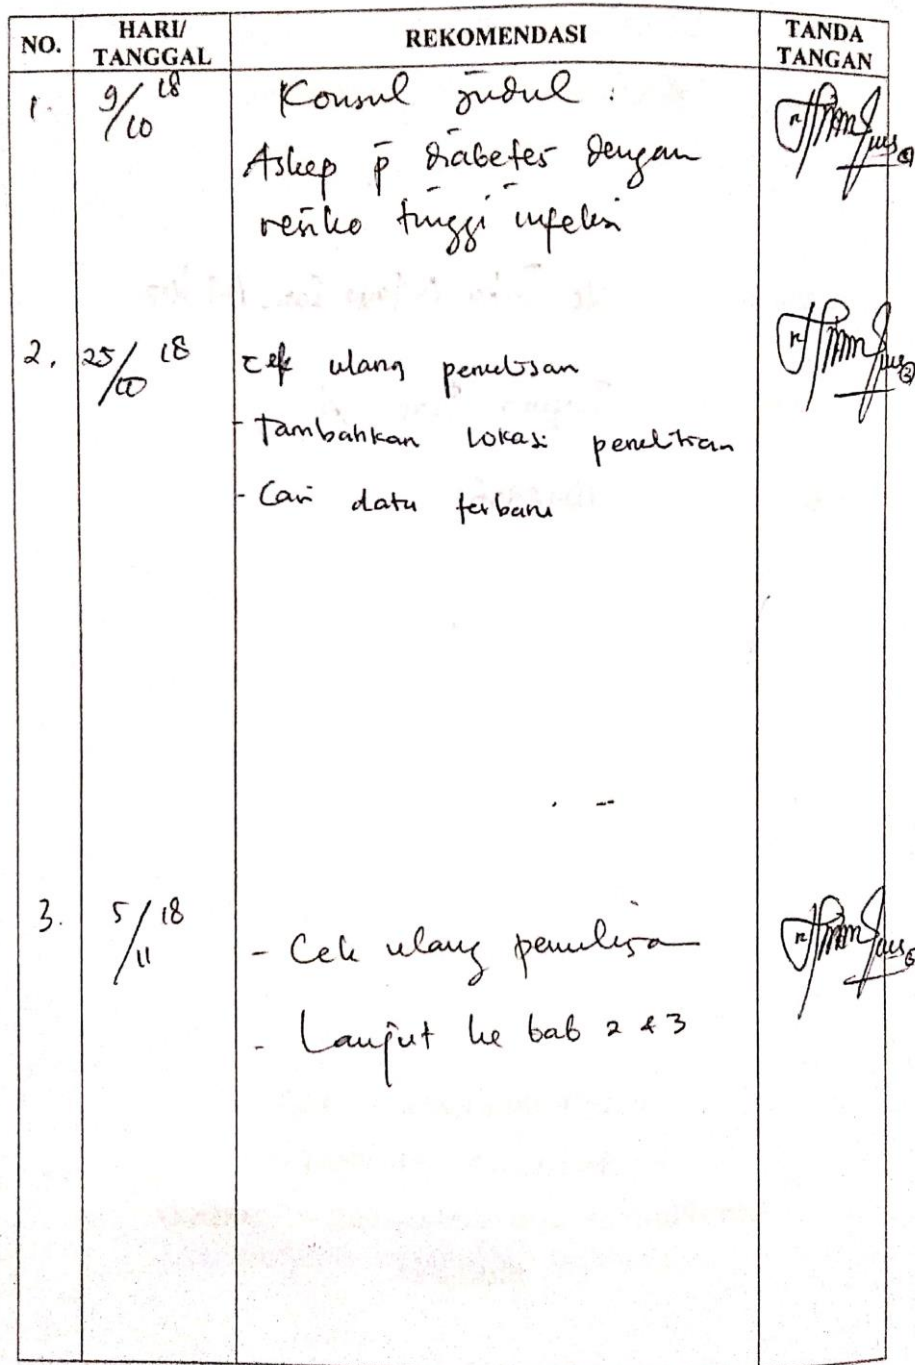 NO. HARI/ TANGGAL REKOMENDASI TANDA TANGAN
1. 9/10 18 Konsul judul :
Askep p̄ diabetes dengan
resiko tinggi infeksi
2. 25/10 18 cek ulang penulisan
- Tambahkan lokasi penelitian
- Cari data terbaru
3. 5/11 18 - Cek ulang penulisan
- Lanjut ke bab 2 & 3